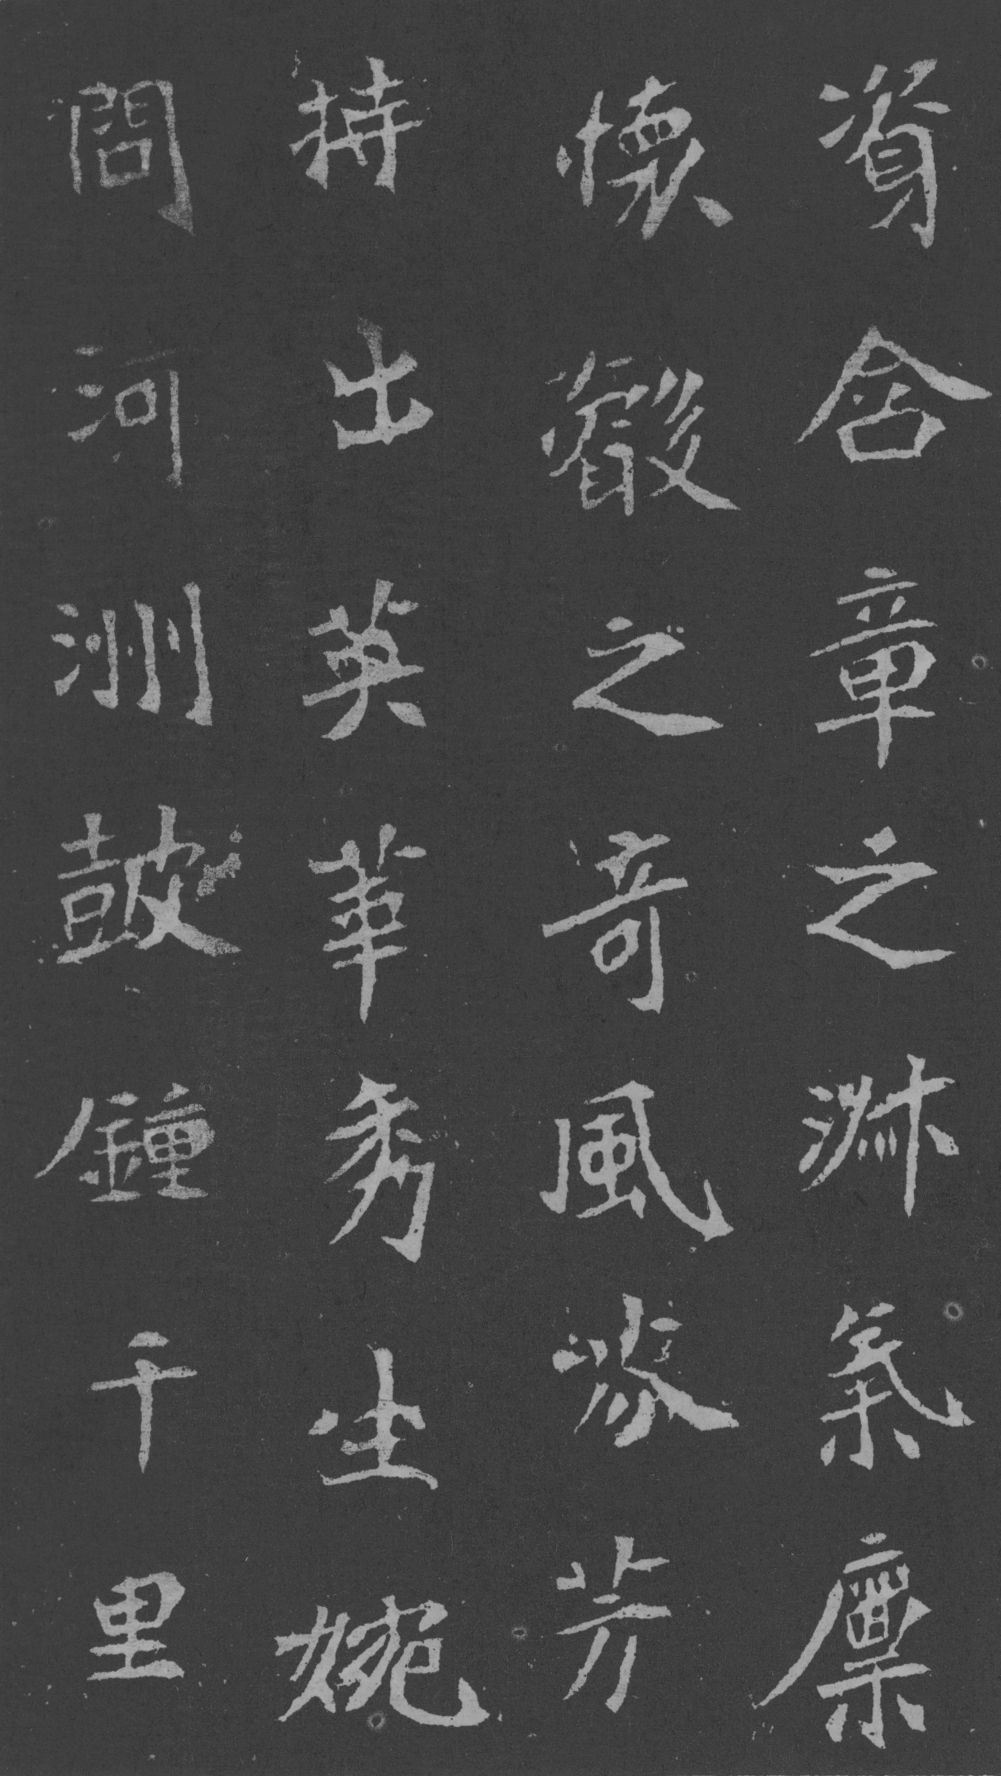 資含章之淋氣廪
懷叡之奇風深芳
持出英華秀生婉
問河洲鼓鍾千里